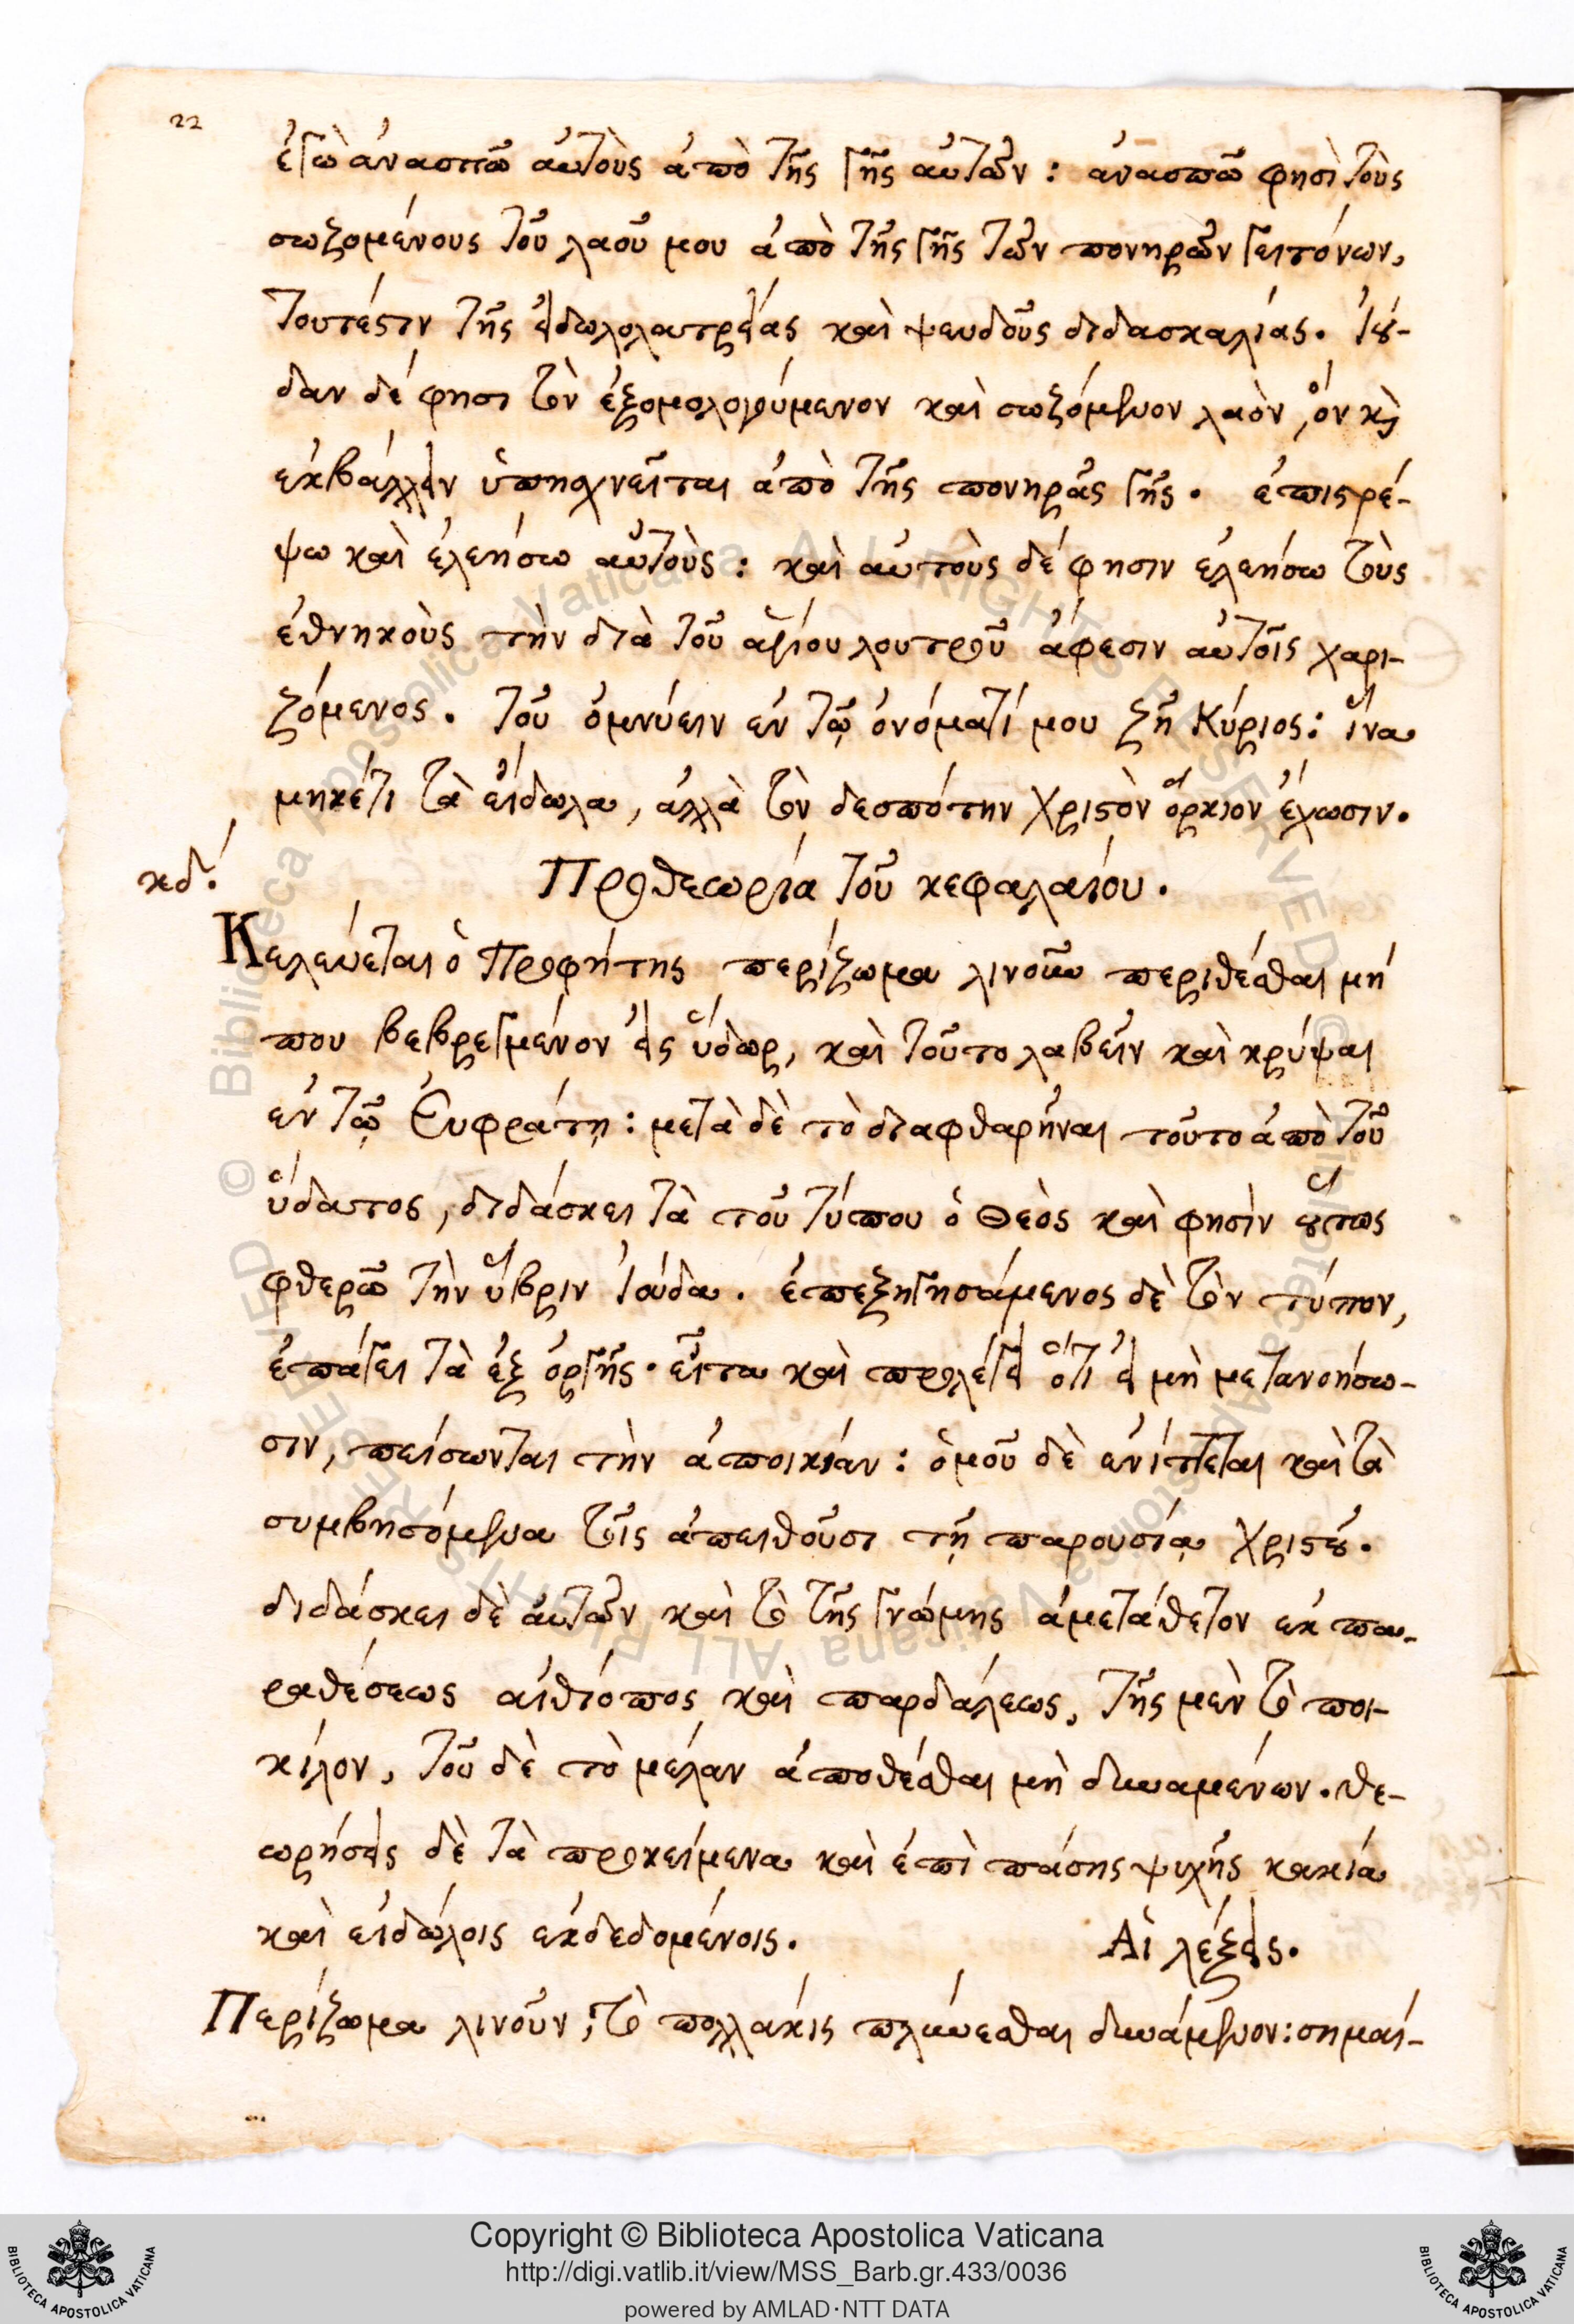 22
ἐγὼ ἀνασπῶ αὐτοὺς ἀπὸ τῆς γῆς αὐτῶν : ἀνασπῶ φησὶ τοὺς
σωζομένους τοῦ λαοῦ μου ἀπὸ τῆς γῆς τῶν πονηρῶν γειτόνων,
τουτέστιν τῆς εἰδωλολατρείας καὶ ψευδοῦς διδασκαλίας. Ἰού-
δαν δέ φησι τὸν ἐξομολογούμενον καὶ σωζόμενον λαὸν, ὅν κὶ
ἐκβάλλειν ὑπησχνεῖται ἀπὸ τῆς πονηρᾶς γῆς. ἐπιστρέ-
ψω καὶ ἐλεήσω αὐτοὺς : καὶ αὐτοὺς δέ φησιν ἐλεήσω τοὺς
ἐθνηκοὺς τὴν διὰ τοῦ ἁγίου λουτροῦ ἄφεσιν αὐτοῖς χαρι-
ζόμενος. τοῦ ὀμνύειν ἐν τῷ ὀνόματί μου ζῇ Κύριος : ἵνα
μηκέτι τὰ εἴδωλα, ἀλλὰ τὸν δεσπότην Χριστὸν ὅρκιον ἔχωσιν.
κδ΄. Προθεωρία τοῦ κεφαλαίου.
Κελεύεται ὁ Προφήτης περίζωμα λινοῦν περιθέσθαι μή
που βεβρεγμένον εἰς ὕδωρ, καὶ τοῦτο λαβεῖν καὶ κρύψαι
ἐν τῷ Εὐφράτῃ : μετὰ δὲ τὸ διαφθαρῆναι τοῦτο ἀπὸ τοῦ
ὕδατος, διδάσκει τὰ τοῦ τύπου ὁ Θεὸς καὶ φησὶν οὕτως
φθερῶ τὴν ὕβριν Ἰούδα. ἐπεξηγησάμενος δὲ τὸν τύπον,
ἐπάγει τὰ ἐξ ὀργῆς. εἶτα καὶ προλέγει ὅτι εἰ μὴ μετανοήσω-
σιν, πείσωνται τὴν ἀποικίαν : ὁμοῦ δὲ ἐνίττεται καὶ τὰ
συμβησόμενα τοῖς ἀπειθοῦσι τῇ παρουσίᾳ Χριστοῦ.
διδάσκει δὲ αὐτῶν καὶ τὸ τῆς γνώμης ἀμετάθετον ἐκ πα-
ραθέσεως αἰθίοπος καὶ παρδάλεως, τῆς μὲν τὸ ποι-
κίλον, τοῦ δὲ τὸ μέλαν ἀποθέσθαι μὴ δυναμένων. θε-
ωρήσεις δὲ τὰ προκείμενα καὶ ἐπὶ πάσης ψυχῆς κακία
καὶ εἰδώλοις ἐκδεδομένοις. Αἱ λέξεις.
Περίζωμα λινοῦν ; τὸ πολλάκις πλύνεσθαι δυνάμενον : σημαί-
Copyright © Biblioteca Apostolica Vaticana
http://digi.vatlib.it/view/MSS_Barb.gr.433/0036
powered by AMLAD·NTT DATA
BIBLIOTECA APOSTOLICA VATICANA
BIBLIOTECA APOSTOLICA VATICANA